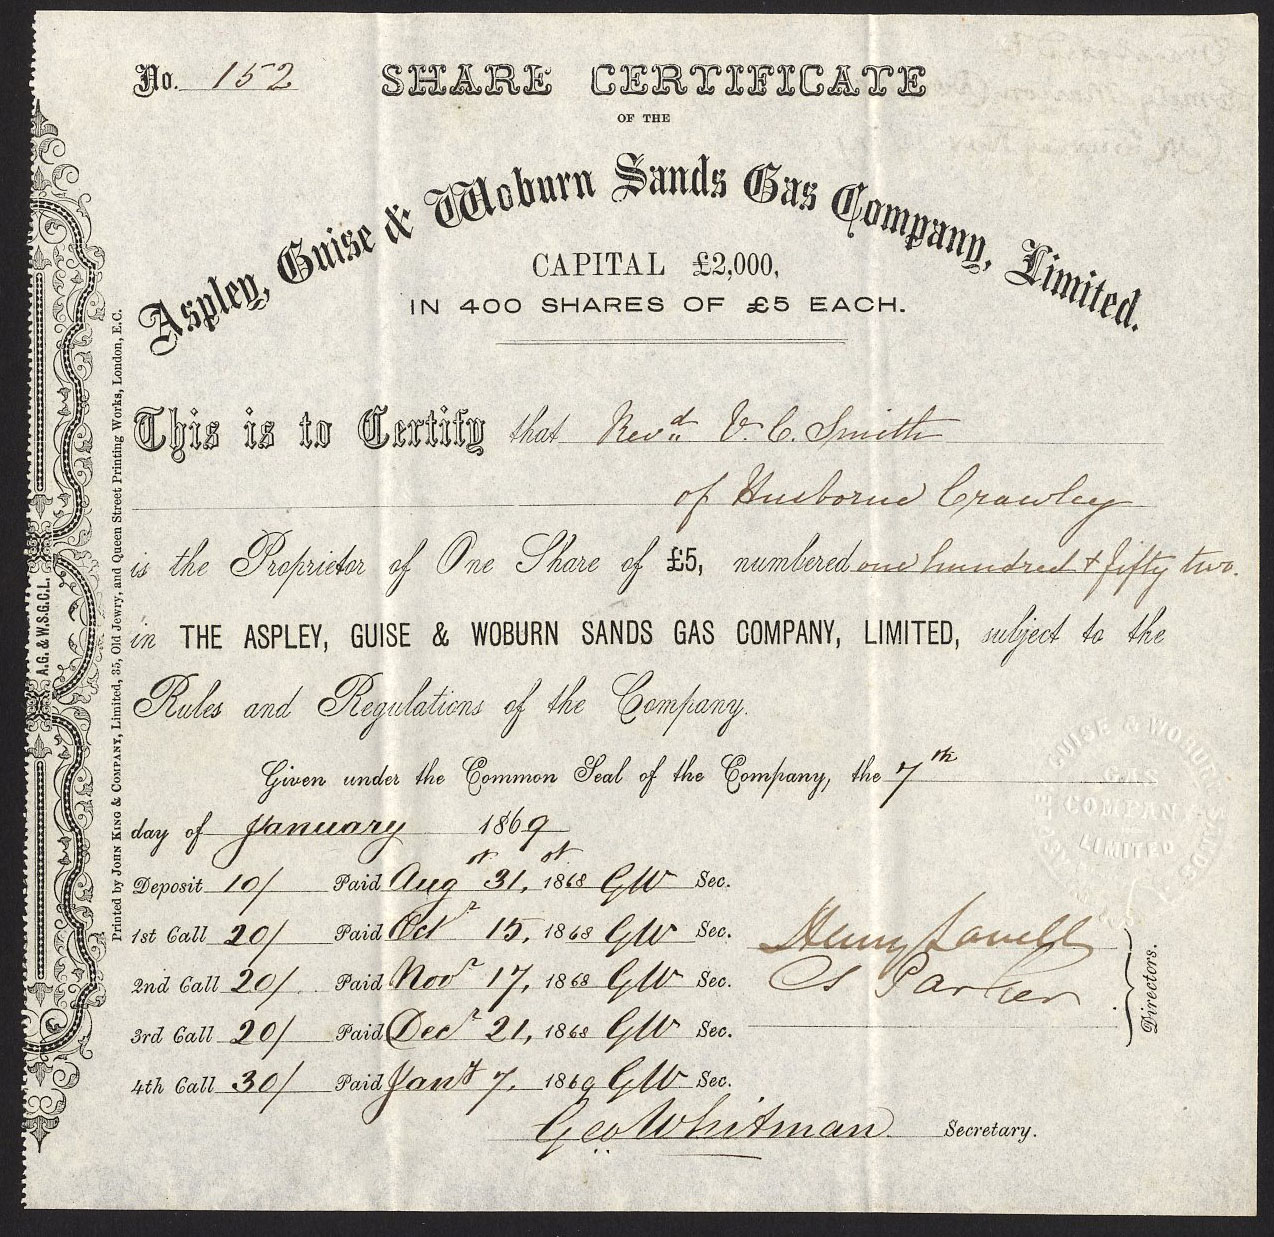 No. 152
SHARE CERTIFICATE
OF THE
Aspley, Guise & Woburn Sands Gas Company, Limited.
CAPITAL £2,000,
IN 400 SHARES OF £5 EACH.
This is to Certify that Revd. V. C. Smith
of Husborne Crawley
is the Proprietor of One Share of £5, numbered one hundred & fifty two.
in THE ASPLEY, GUISE & WOBURN SANDS GAS COMPANY, LIMITED, subject to the
Rules and Regulations of the Company.
Given under the Common Seal of the Company, the 7th
day of January 1869
Deposit 10/ Paid Augst 31st, 1868 GW Sec.
1st Call 20/ Paid Octr 15, 1868 GW Sec.
2nd Call 20/ Paid Novr 17, 1868 GW Sec.
3rd Call 20/ Paid Decr 21, 1868 GW Sec.
4th Call 30/ Paid Jany 7, 1869 GW Sec.
Henry Lovell
S Parker
Directors.
Geo Whitman Secretary.
A.G. & W.S.G.C.L.
Printed by JOHN KING & COMPANY, Limited, 35, Old Jewry, and Queen Street Printing Works, London, E.C.
GUISE & WOBURN SANDS
GAS
COMPANY
LIMITED